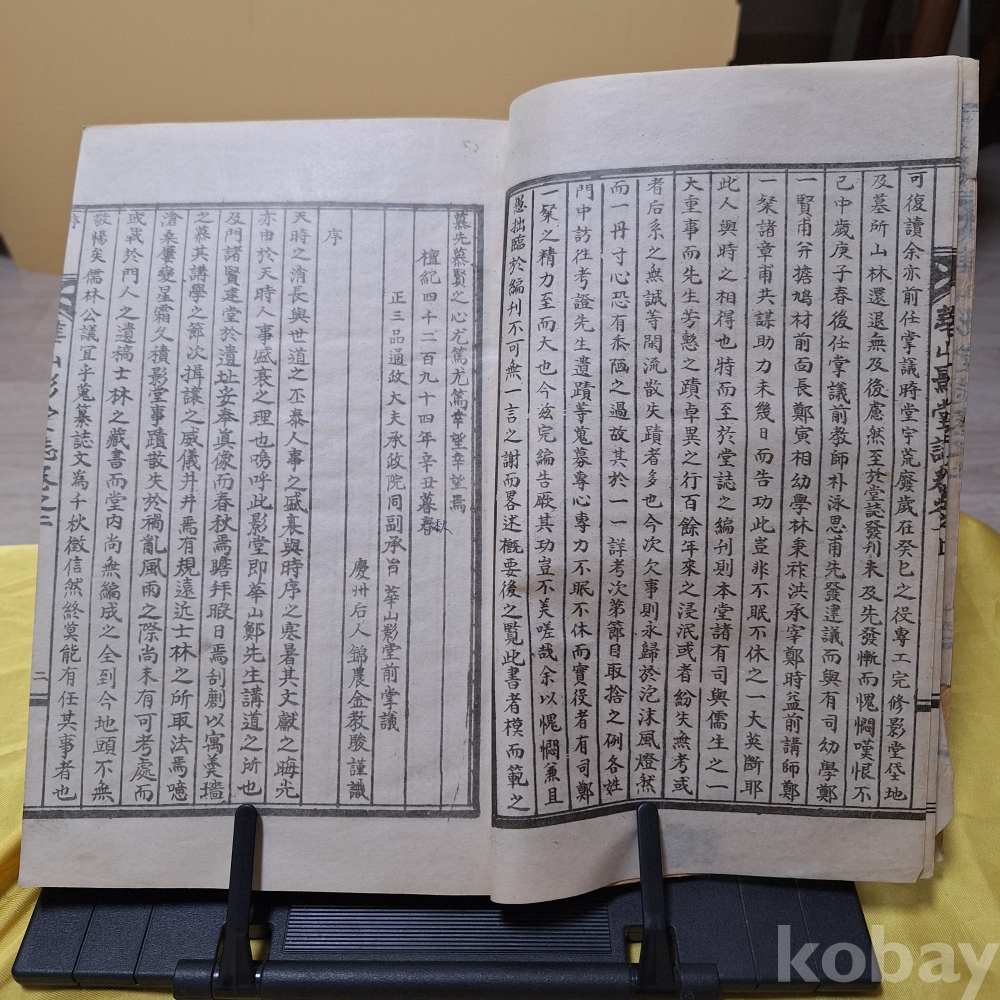 可復讀余亦前任掌議時堂宇荒廢歲在癸巳之役專工完修影堂垈地
及墓所山林還退無及後慮然至於堂誌發刊未及先發慚而愧憫嘆恨不
已中歲庚子春後任掌議前教師朴泳思甫先發建議而與有司幼學鄭
一賢甫弁擔鳩材前面長鄭寅相幼學林秉祚洪承宰鄭時益前講師鄭
一粲諸章甫共謀助力未幾日而告功此豈非不眠不休之一大英斷耶
此人與時之相得也特而至於堂誌之編刊則本堂諸有司與儒生之一
大重事而先生芳懃之蹟卓異之行百餘年來之浸泯或者紛失無考或
者后系之無誠等閑流散失蹟者多也今次欠事則永歸於泡沫風燈然
而一丹寸心恐有忝陋之過故其於一一詳考次第節目取捨之例各姓
門中訪往考證先生遺蹟等蒐募專心專力不眠不休而實役者有司鄭
一粲之精力至而大也今玆完編告厥其功豈不美嗟哉余以愧憫兼且
愚拙臨於編刊不可無一言之謝而畧述槪要後之覽此書者模而範之
華山影堂誌卷之
慕先慕賢之心尤篤尤篤幸望幸望焉
檀紀四千二百九十四年辛丑暮春
秋
正三品通政大夫承政院同副承旨華山影堂前掌議
慶州后人錦農金敎駿謹識
序
天時之消長與世道之丕泰人事之盛衰與時序之寒暑其文獻之晦光
亦由於天時人事盛衰之理也嗚呼此影堂即華山鄭先生講道之所也
及門諸賢建堂於遺址妥奉眞像而春秋焉瞻拜暇日焉刮劘以寓羹墻
之慕其講學之節次揖讓之威儀井井焉有規遠近士林之所取法焉噫
滄桑屢變星霜久積影堂事蹟散失於禍亂風雨之際尚未有可考處而
或哉於門人之遺稿士林之藏書而堂内尚無編成之全到今地頭不無
敬惕矣儒林公議宜乎蒐纂誌文為千秋徵信然終莫能有任其事者也
序
華山影堂誌卷之二
二
kobay